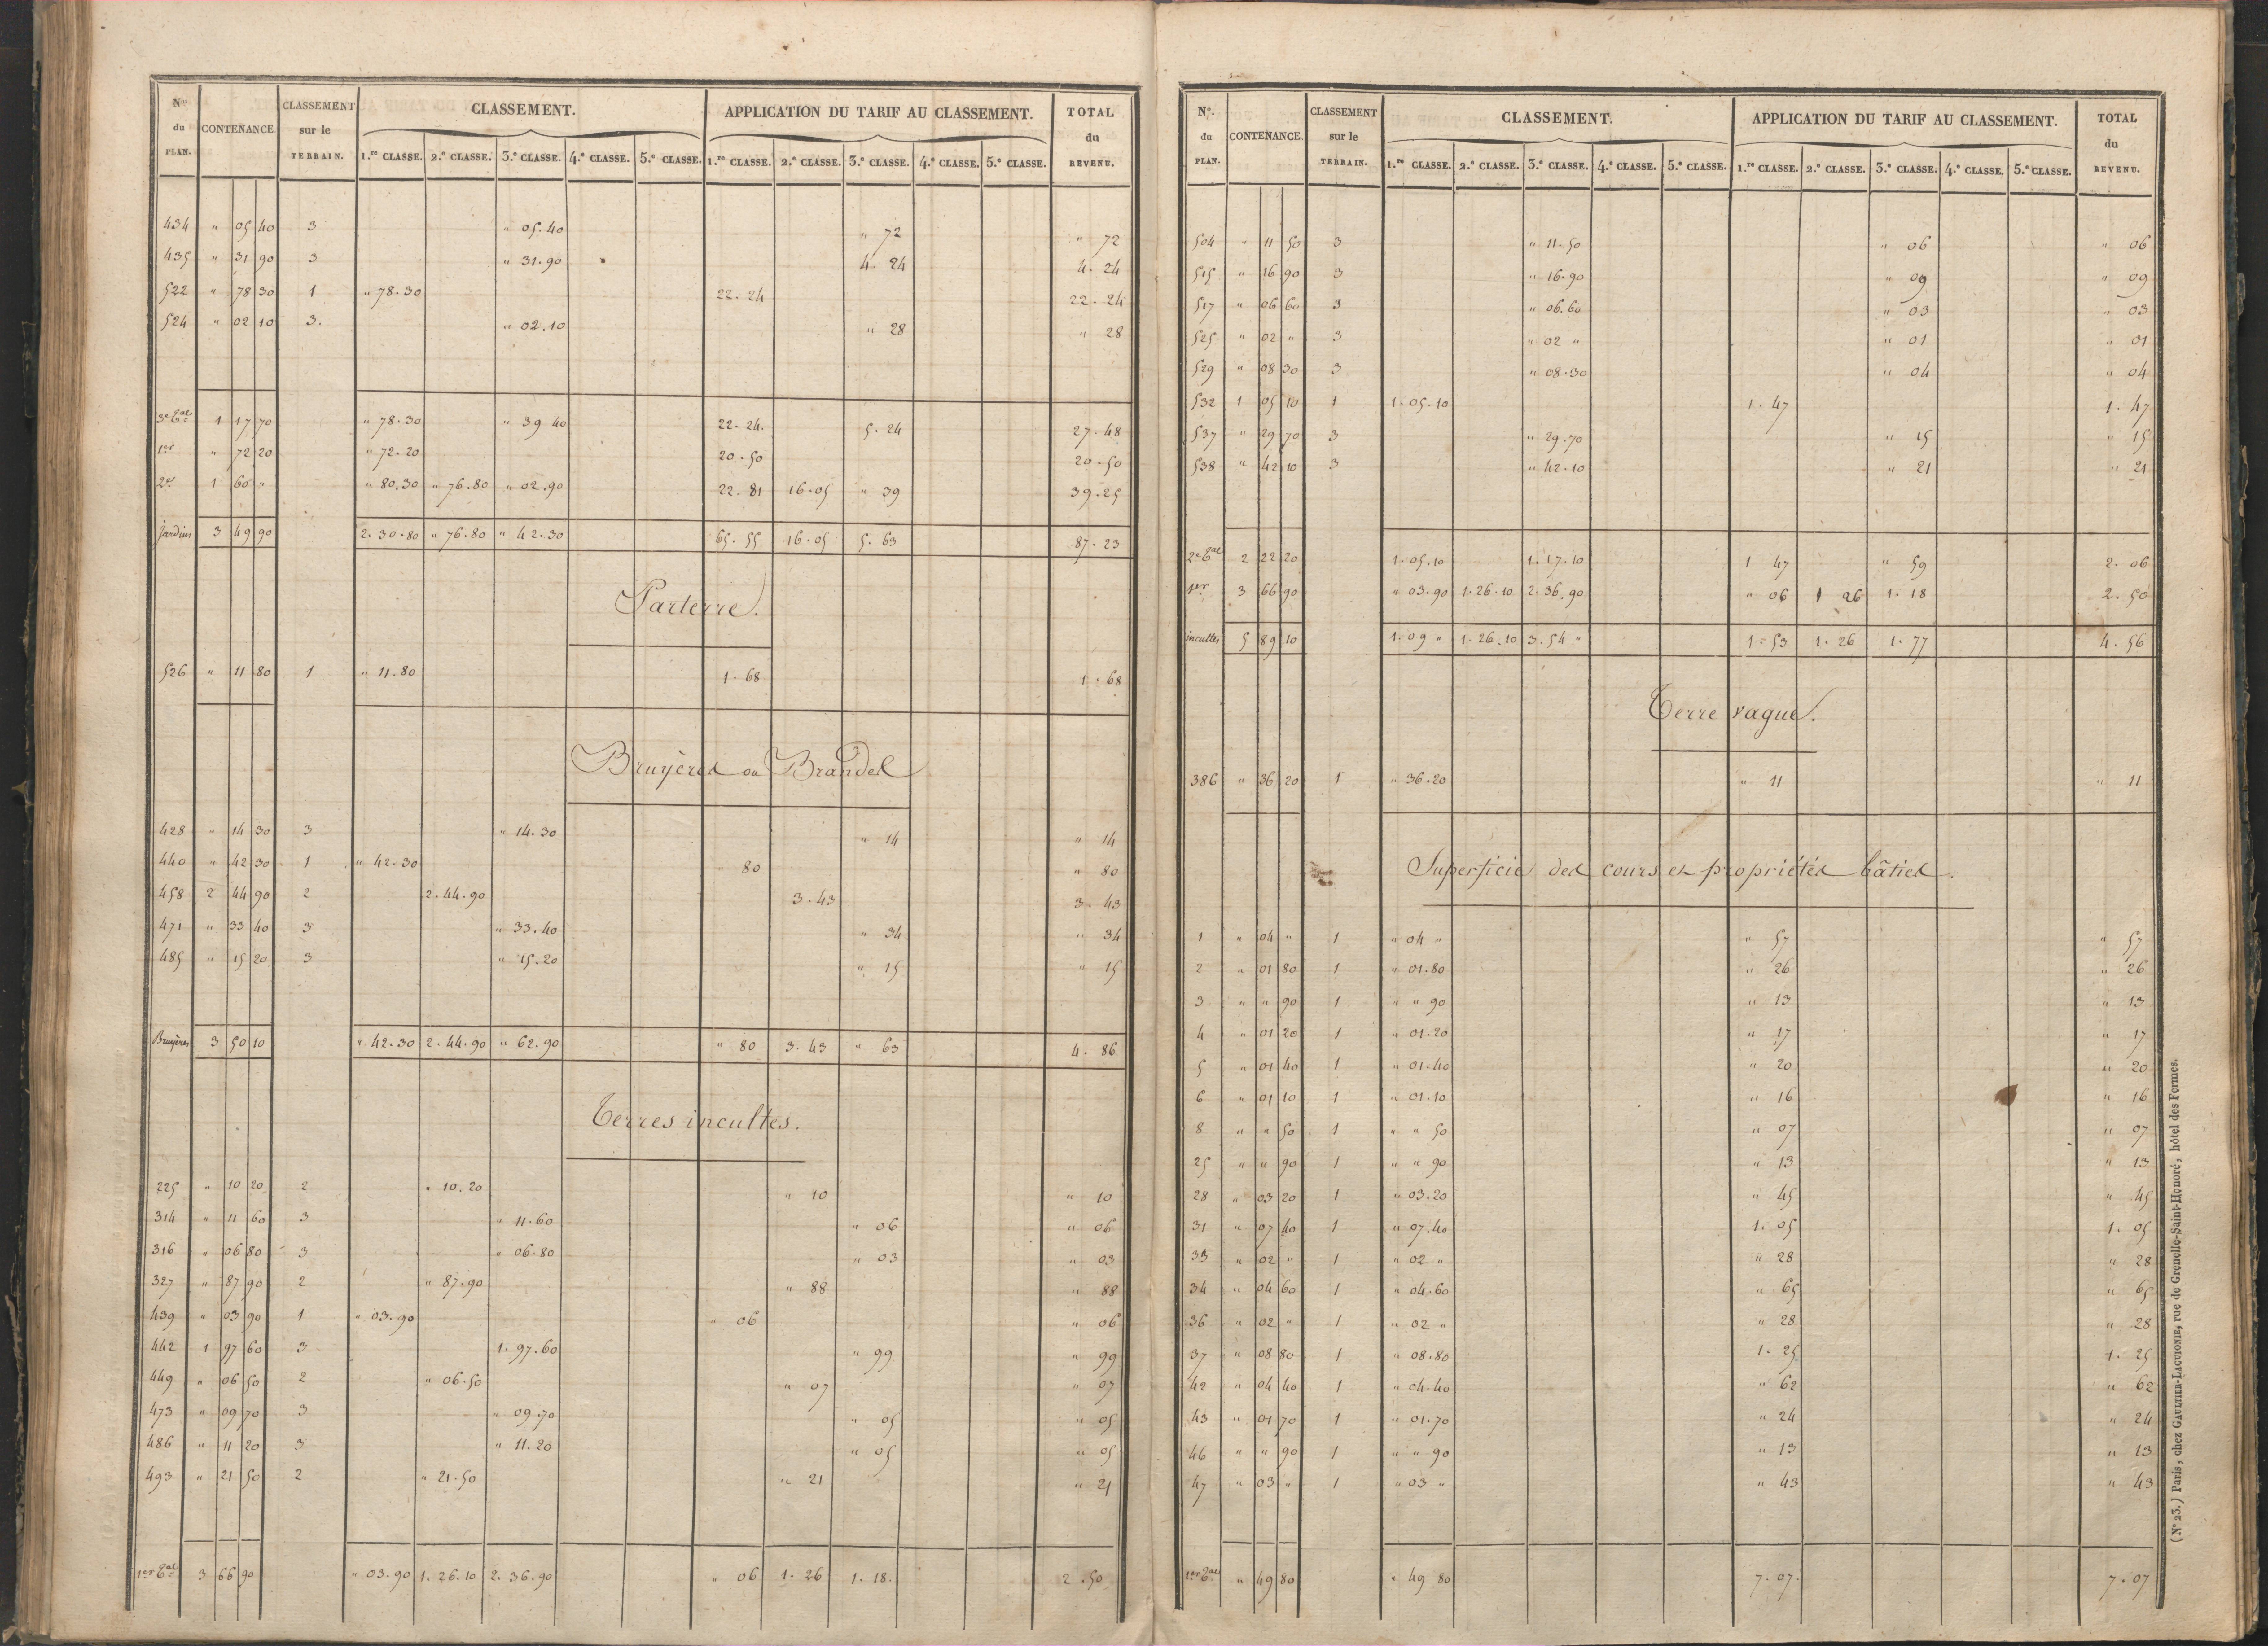 N.os du PLAN. CONTENANCE. CLASSEMENT sur le TERRAIN. CLASSEMENT. APPLICATION DU TARIF AU CLASSEMENT. TOTAL du REVENU.
1.re CLASSE. 2.e CLASSE. 3.e CLASSE. 4.e CLASSE. 5.e CLASSE. 1.re CLASSE. 2.e CLASSE. 3.e CLASSE. 4.e CLASSE. 5.e CLASSE.
434 " 05 40 3 " 05.40 " 72 " 72
435 " 31 90 3 " 31.90 4. 24 4. 24
522 " 78 30 1 " 78.30 22. 24 22. 24
524 " 02 10 3. " 02.10 " 28 " 28
3e Tal 1 17 70 " 78.30 " 39 40 22. 24. 5. 24 27. 48
1er " 72 20 " 72.20 20. 50 20. 50
2e 1 60 " " 80.30 " 76.80 " 02.90 22. 81 16. 05 " 39 39. 25
Jardins 3 49 90 2. 30. 80 " 76.80 " 42.30 65. 55 16. 05 5. 63 87. 23
Parterre.
526 " 11 80 1 " 11.80 1. 68 1. 68
Bruyères ou Brandes
428 " 14 30 3 " 14.30 " 14 " 14
440 " 42 30 1 " 42.30 " 80 " 80
458 2 44 90 2 2.44.90 3. 43 3. 43
471 " 33 40 3 " 33.40 " 34 " 34
485 " 15 20 3 " 15.20 " 15 " 15
Bruyères 3 50 10 " 42.30 2.44.90 " 62.90 " 80 3. 43 " 63 4. 86
Terres incultes.
225 " 10 20 2 " 10.20 " 10 " 10
314 " 11 60 3 " 11.60 " 06 " 06
316 " 06 80 3 " 06.80 " 03 " 03
327 " 87 90 2 " 87.90 " 88 " 88
439 " 03 90 1 " 03.90 " 06 " 06
442 1 97 60 3 1. 97.60 " 99 " 99
449 " 06 50 2 " 06.50 " 07 " 07
473 " 09 70 3 " 09.70 " 05 " 05
486 " 11 20 3 " 11.20 " 05 " 05
493 " 21 50 2 " 21.50 " 21 " 21
1er Tal 3 66 90 " 03.90 1. 26.10 2. 36.90 " 06 1. 26 1. 18. 2. 50
N.os du PLAN. CONTENANCE. CLASSEMENT sur le TERRAIN. CLASSEMENT. APPLICATION DU TARIF AU CLASSEMENT. TOTAL du REVENU.
1.re CLASSE. 2.e CLASSE. 3.e CLASSE. 4.e CLASSE. 5.e CLASSE. 1.re CLASSE. 2.e CLASSE. 3.e CLASSE. 4.e CLASSE. 5.e CLASSE.
504 " 11 50 3 " 11.50 " 06 " 06
515 " 16 90 3 " 16.90 " 09 " 09
517 " 06 60 3 " 06.60 " 03 " 03
525 " 02 " 3 " 02 " " 01 " 01
529 " 08 30 3 " 08.30 " 04 " 04
532 1 05 10 1 1. 05.10 1. 47 1. 47
537 " 29 70 3 " 29.70 " 15 " 15
538 " 42 10 3 " 42.10 " 21 " 21
2e Tal 2 22 20 1. 05.10 1. 17.10 1 47 " 59 2. 06
1er 3 66 90 " 03.90 1. 26.10 2. 36.90 " 06 1 26 1. 18 2. 50
incultes 5 89 10 1. 09 " 1. 26.10 3. 54 " 1. 53 1. 26 1. 77 4. 56
Terre vague.
386 " 36 20 1 " 36.20 " 11 " 11
Superficie des cours et propriétés bâties.
1 " 04 " 1 " 04 " " 57 " 57
2 " 01 80 1 " 01.80 " 26 " 26
3 " " 90 1 " " 90 " 13 " 13
4 " 01 20 1 " 01.20 " 17 " 17
5 " 01 40 1 " 01.40 " 20 " 20
6 " 01 10 1 " 01.10 " 16 " 16
8 " " 50 1 " " 50 " 07 " 07
25 " " 90 1 " " 90 " 13 " 13
28 " 03 20 1 " 03.20 " 45 " 45
31 " 07 40 1 " 07.40 1. 05 1. 05
33 " 02 " 1 " 02 " " 28 " 28
34 " 04 60 1 " 04.60 " 65 " 65
36 " 02 " 1 " 02 " " 28 " 28
37 " 08 80 1 " 08.80 1. 25 1. 25
42 " 04 40 1 " 04.40 " 62 " 62
43 " 01 70 1 " 01.70 " 24 " 24
46 " " 90 1 " " 90 " 13 " 13
47 " 03 " 1 " 03 " " 43 " 43
1er Tal " 49 80 " 49 80 7. 07. 7. 07
(N° 23.) Paris, chez GAULTIER-LAGUIONIE, rue de Grenelle-Saint-Honoré, hôtel des Fermes.